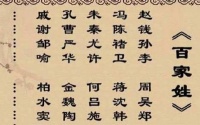 《百家姓》
赵钱孙李 周吴郑
冯陈褚卫 蒋沈韩
朱秦尤许 何吕施
孔曹严华 金魏陶
戚谢邹喻 柏水窦